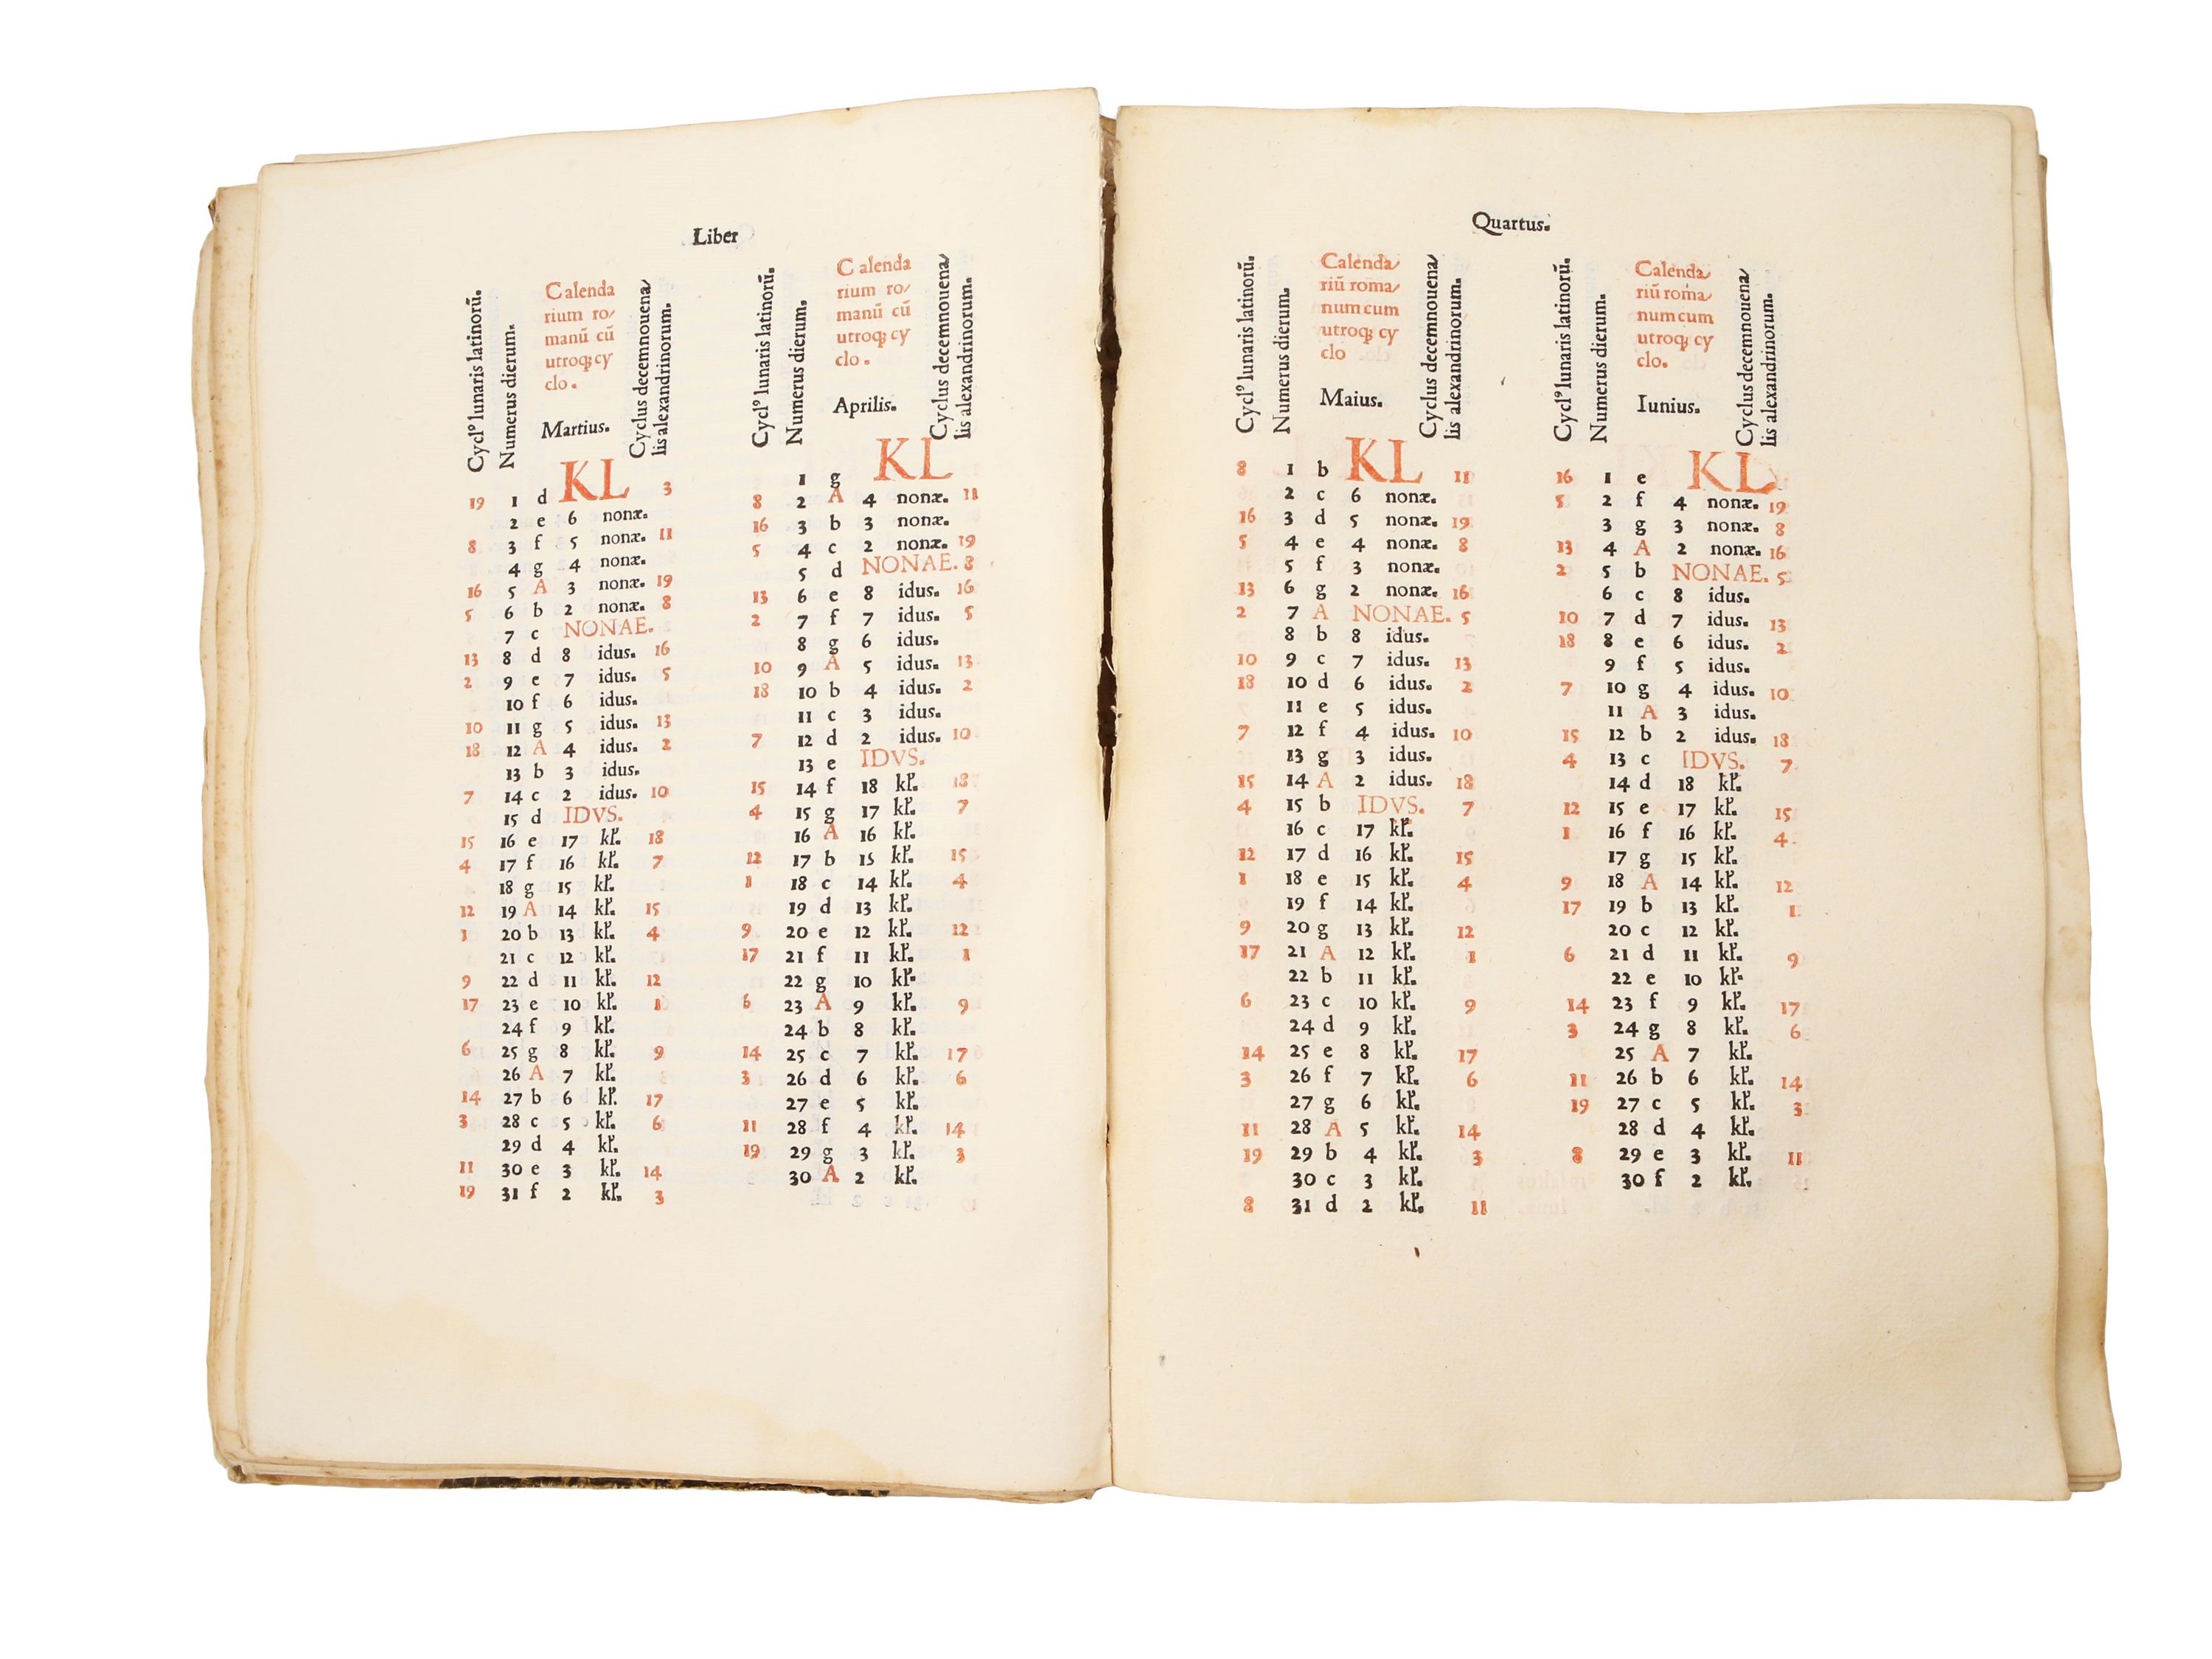 Liber
Cyclꝰ lunaris latinorũ.
Numerus dierum.
Calenda
rium ro/
manũ cũ
utroqꝫ cy
clo.
Martius.
Cyclus decemnouena/
lis alexandrinorum.
19 1 d KL 3
2 e 6 nonæ.
8 3 f 5 nonæ. 11
4 g 4 nonæ.
16 5 A 3 nonæ. 19
5 6 b 2 nonæ. 8
7 c NONAE.
13 8 d 8 idus. 16
2 9 e 7 idus. 5
10 f 6 idus.
10 11 g 5 idus. 13
18 12 A 4 idus. 2
13 b 3 idus.
7 14 c 2 idus. 10
15 d IDVS.
15 16 e 17 kł. 18
4 17 f 16 kł. 7
18 g 15 kł.
12 19 A 14 kł. 15
1 20 b 13 kł. 4
21 c 12 kł.
9 22 d 11 kł. 12
17 23 e 10 kł. 1
24 f 9 kł.
6 25 g 8 kł. 9
26 A 7 kł.
14 27 b 6 kł. 17
3 28 c 5 kł. 6
29 d 4 kł.
11 30 e 3 kł. 14
19 31 f 2 kł. 3
Cyclꝰ lunaris latinorũ.
Numerus dierum.
Calenda
rium ro/
manũ cũ
utroqꝫ cy
clo.
Aprilis.
Cyclus decemnouena/
lis alexandrinorum.
1 g KL
8 2 A 4 nonæ. 11
16 3 b 3 nonæ.
5 4 c 2 nonæ. 19
5 d NONAE. 8
13 6 e 8 idus. 16
2 7 f 7 idus. 5
8 g 6 idus.
10 9 A 5 idus. 13
18 10 b 4 idus. 2
11 c 3 idus.
7 12 d 2 idus. 10
13 e IDVS.
15 14 f 18 kł. 18
4 15 g 17 kł. 7
16 A 16 kł.
12 17 b 15 kł. 15
1 18 c 14 kł. 4
19 d 13 kł.
9 20 e 12 kł. 12
17 21 f 11 kł. 1
22 g 10 kł.
6 23 A 9 kł. 9
24 b 8 kł.
14 25 c 7 kł. 17
3 26 d 6 kł. 6
27 e 5 kł.
11 28 f 4 kł. 14
19 29 g 3 kł. 3
30 A 2 kł.
Quartus.
Cyclꝰ lunaris latinorũ.
Numerus dierum.
Calenda/
riũ roma/
num cum
utroqꝫ cy
clo
Maius.
Cyclus decemnouena/
lis alexandrinorum.
8 1 b KL 11
2 c 6 nonæ.
16 3 d 5 nonæ. 19
5 4 e 4 nonæ. 8
5 f 3 nonæ.
13 6 g 2 nonæ. 16
2 7 A NONAE. 5
8 b 8 idus.
10 9 c 7 idus. 13
18 10 d 6 idus. 2
11 e 5 idus.
7 12 f 4 idus. 10
13 g 3 idus.
15 14 A 2 idus. 18
4 15 b IDVS. 7
16 c 17 kł.
12 17 d 16 kł. 15
1 18 e 15 kł. 4
19 f 14 kł.
9 20 g 13 kł. 12
17 21 A 12 kł. 1
22 b 11 kł.
6 23 c 10 kł. 9
24 d 9 kł.
14 25 e 8 kł. 17
3 26 f 7 kł. 6
27 g 6 kł.
11 28 A 5 kł. 14
19 29 b 4 kł. 3
30 c 3 kł.
8 31 d 2 kł. 11
Cyclꝰ lunaris latinorũ.
Numerus dierum.
Calenda/
riũ roma/
num cum
utroqꝫ cy
clo.
Iunius.
Cyclus decemnouena/
lis alexandrinorum.
16 1 e KL
5 2 f 4 nonæ. 19
3 g 3 nonæ. 8
13 4 A 2 nonæ. 16
2 5 b NONAE. 5
6 c 8 idus.
10 7 d 7 idus. 13
18 8 e 6 idus. 2
9 f 5 idus.
7 10 g 4 idus. 10
11 A 3 idus.
15 12 b 2 idus. 18
4 13 c IDVS. 7
14 d 18 kł.
12 15 e 17 kł. 15
1 16 f 16 kł. 4
17 g 15 kł.
9 18 A 14 kł. 12
17 19 b 13 kł. 1
20 c 12 kł.
6 21 d 11 kł. 9
22 e 10 kł.
14 23 f 9 kł. 17
3 24 g 8 kł. 6
25 A 7 kł.
11 26 b 6 kł. 14
19 27 c 5 kł. 3
28 d 4 kł.
8 29 e 3 kł. 11
30 f 2 kł.